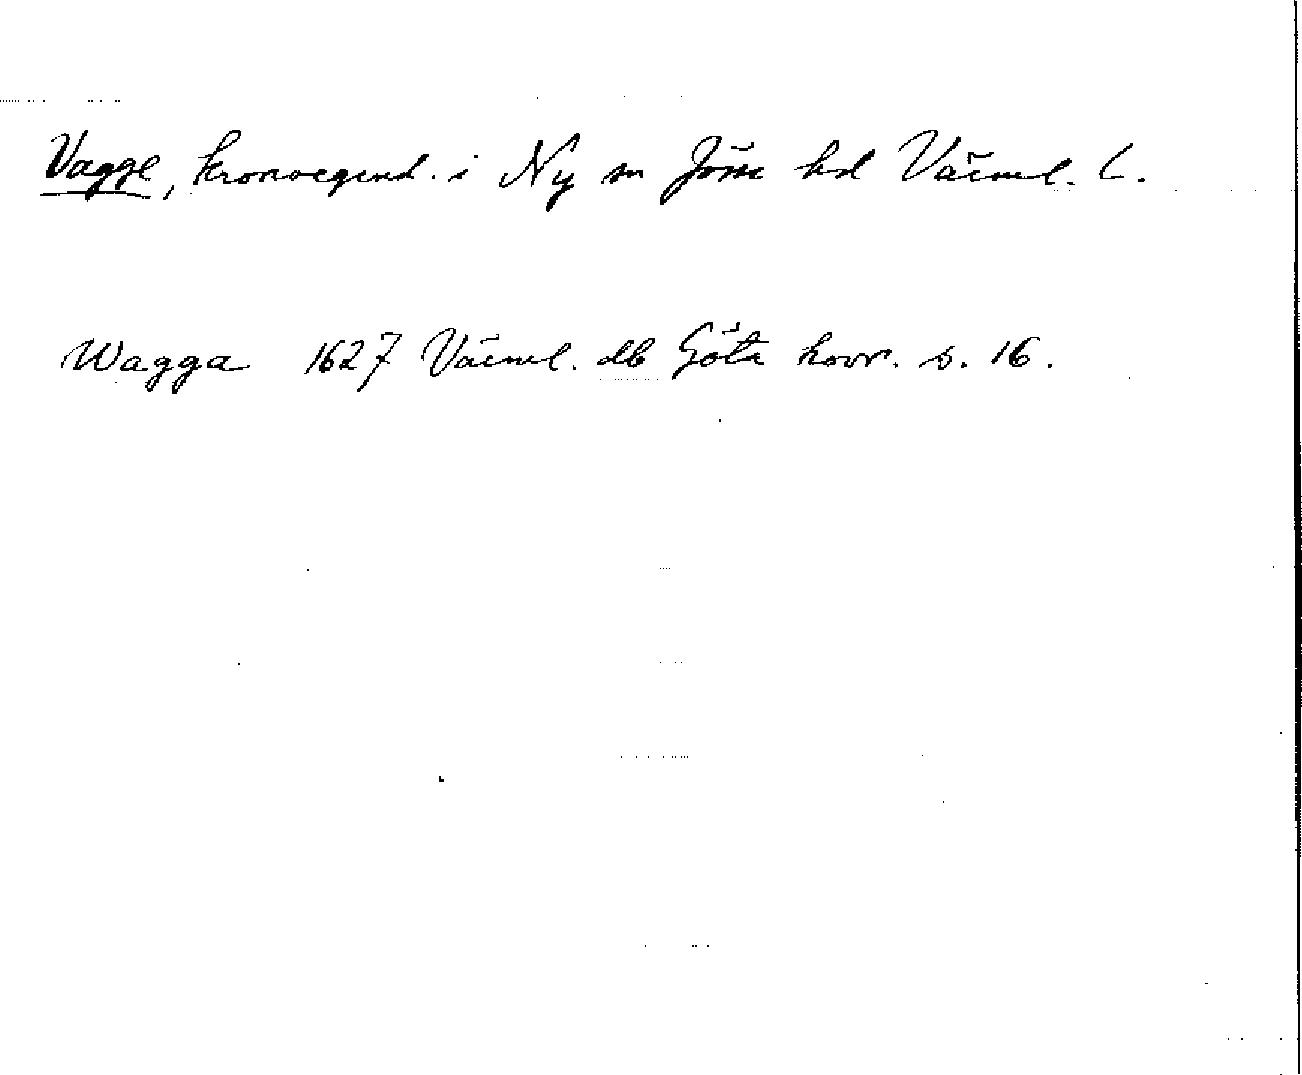 Vagge, kronoegend. i Ny sn Jösse hd Värml. l.
Wagga 1627 Värml. db Göta hovr. s. 16.